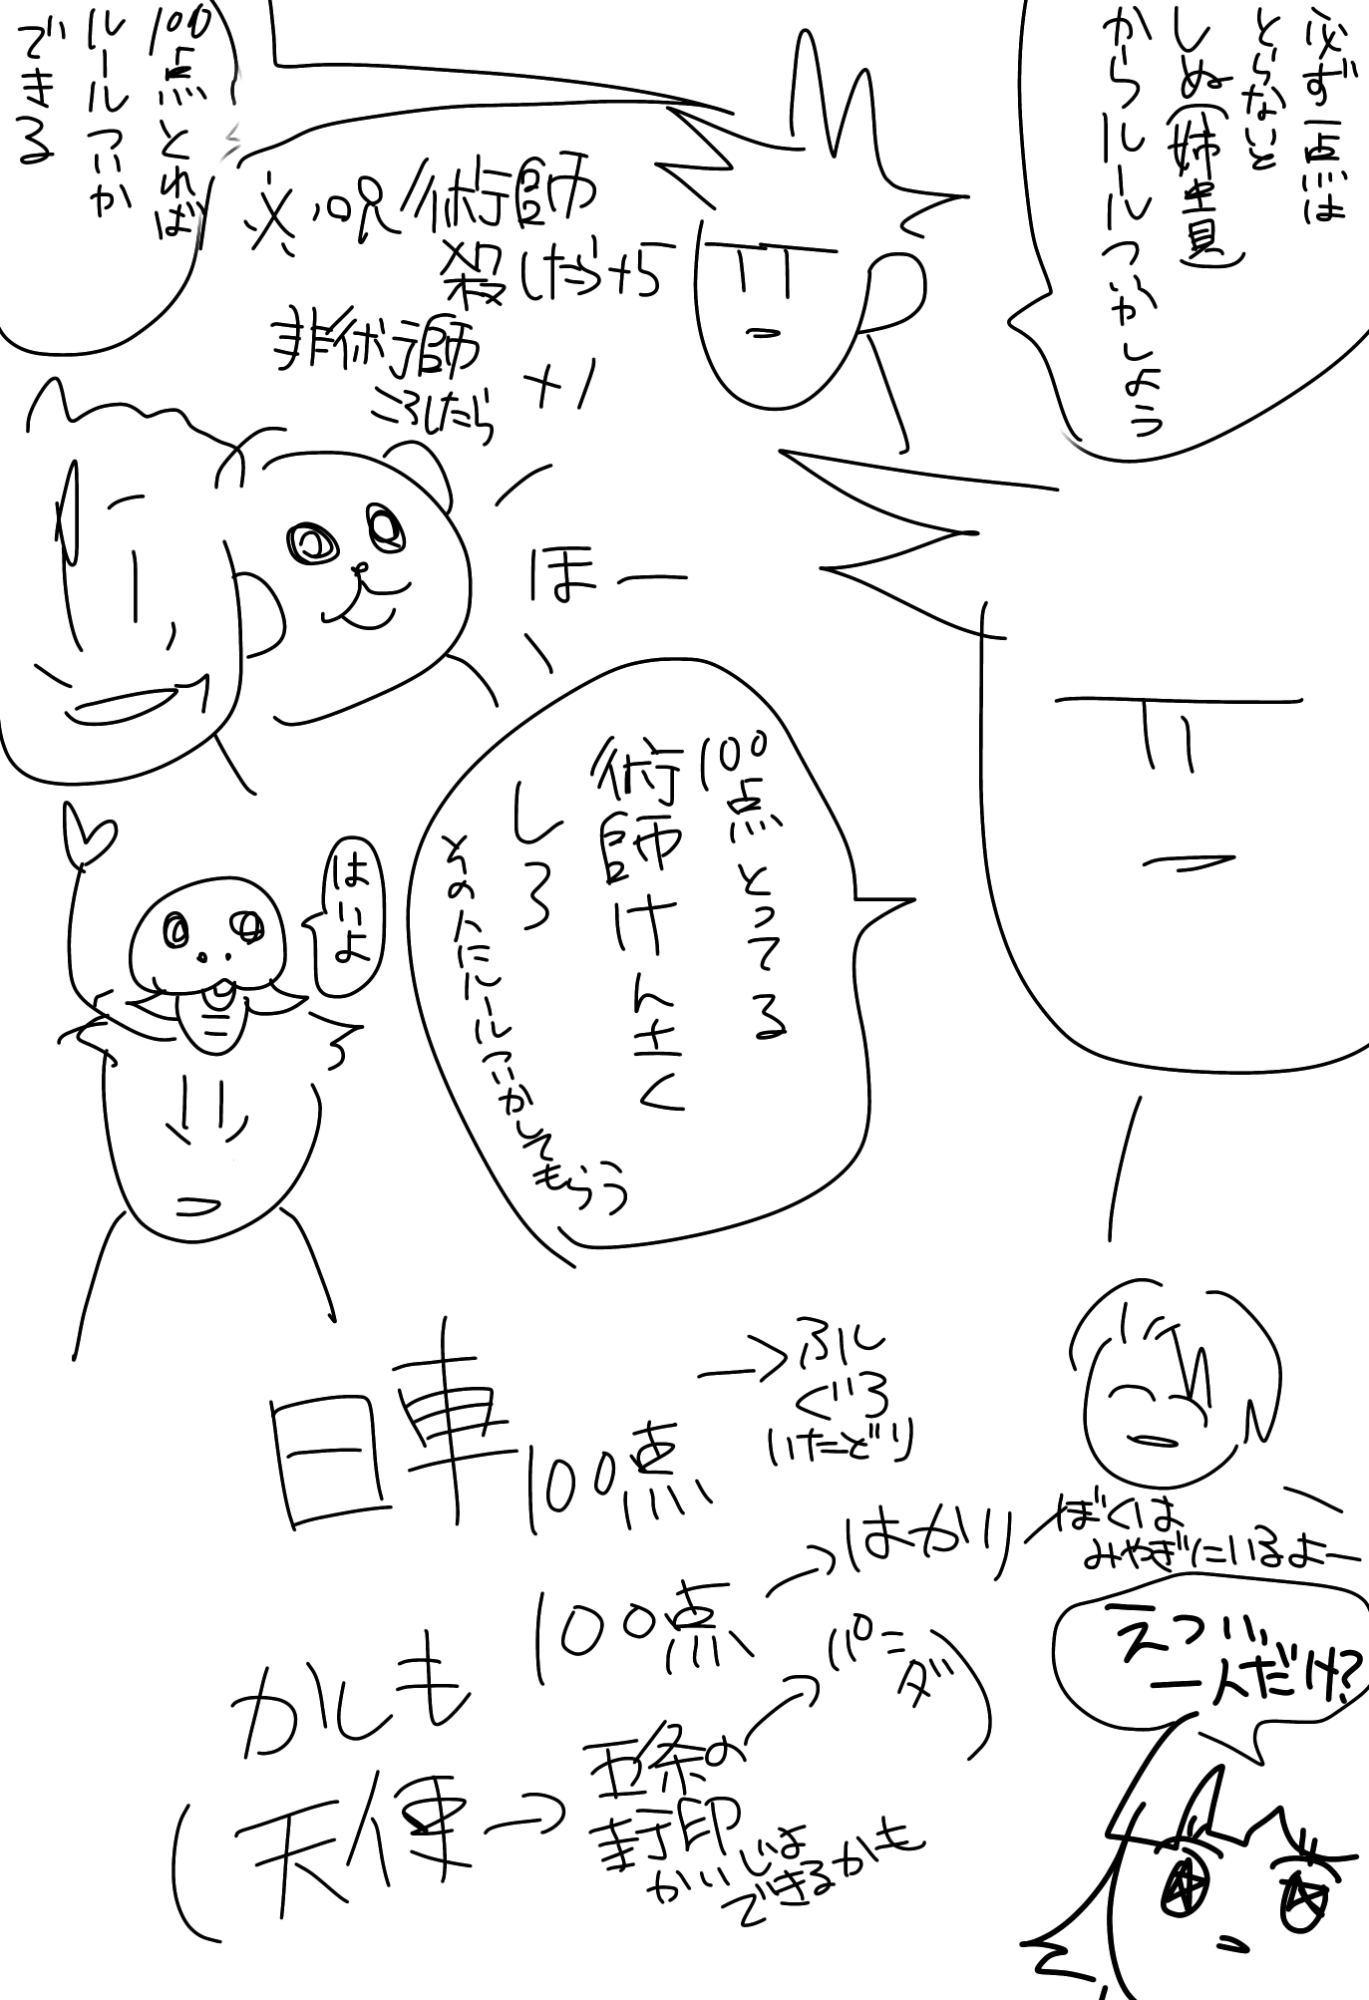 必ず一点は
とらないと
しぬ(姉責)
からルールついかしよう
100点とれば
ルールついか
できる
※呪術師
殺したら+5
非術師
ころしたら +1
ほー
100点とってる
術師けんさく
しろ
その人にルールついかしてもらう
はいよ
日車 100点 → ふし
ぐろ
いたどり
かしも 100点 → はかり
パンダ
(天使 → 五条の
封印
かいじょ
できるかも)
ぼくは
みやぎにいるよー
えっ…
一人だけ?